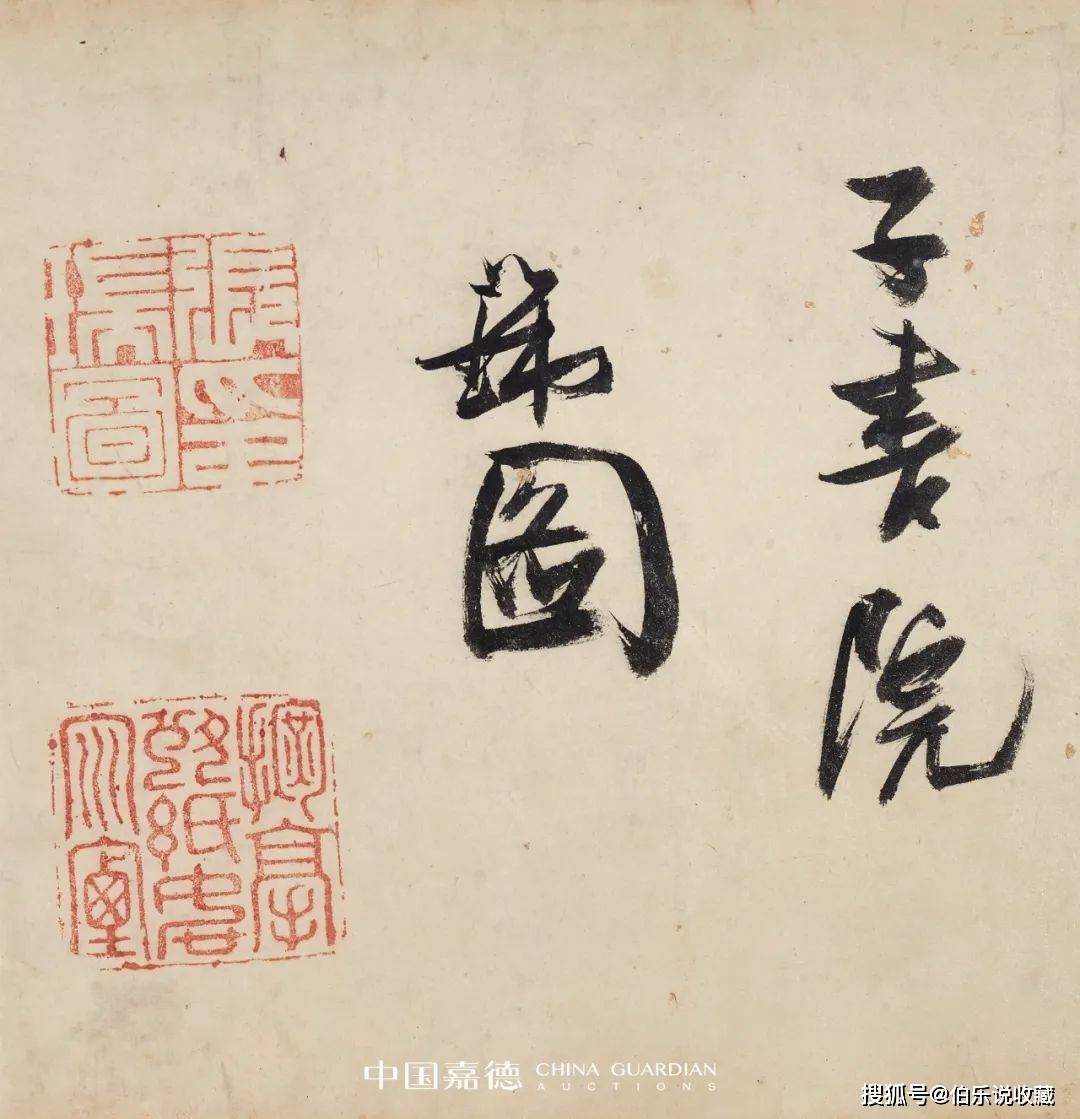 子書院
瑞圖
張印
瑞圖
中国嘉德 CHINA GUARDIAN
AUCTIONS
搜狐号@伯乐说收藏